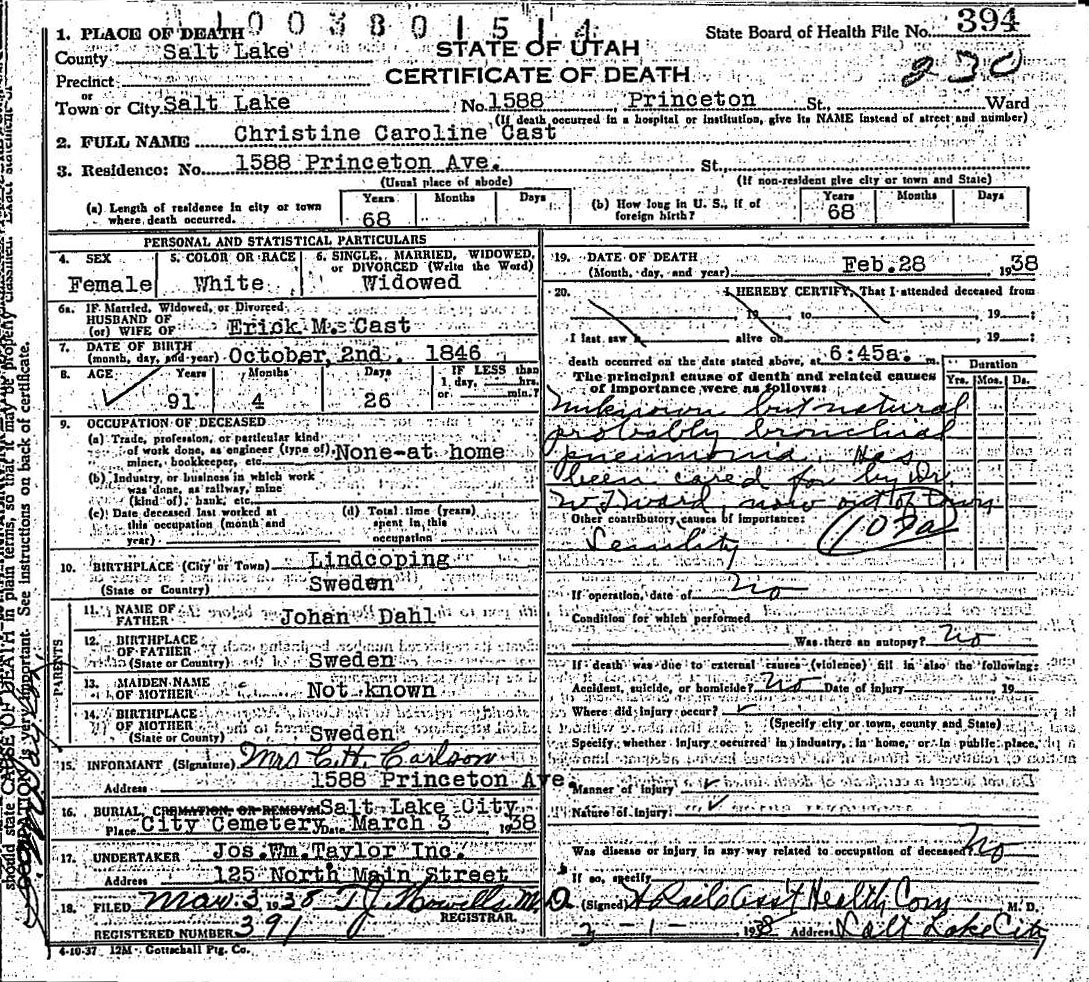 1003801514
1. PLACE OF DEATH
County Salt Lake
Precinct
or
Town or City Salt Lake No. 1588 Princeton St., Ward
STATE OF UTAH
CERTIFICATE OF DEATH
State Board of Health File No. 394
230
(If death occurred in a hospital or institution, give its NAME instead of street and number)
2. FULL NAME Christine Caroline Cast
3. Residence: No. 1588 Princeton Ave. St.,
(Usual place of abode) (If non-resident give city or town and State)
(a) Length of residence in city or town where death occurred. Years 68 Months Days
(b) How long in U. S., if of foreign birth? Years 68 Months Days
PERSONAL AND STATISTICAL PARTICULARS
4. SEX Female
5. COLOR OR RACE White
6. SINGLE, MARRIED, WIDOWED, or DIVORCED (Write the Word) Widowed
6a. IF Married, Widowed, or Divorced
HUSBAND OF
(or) WIFE OF Erick M. Cast
7. DATE OF BIRTH
(month, day, and year) October, 2nd. 1846
8. AGE Years 91 Months 4 Days 26 IF LESS than 1 day, hrs. or min.?
9. OCCUPATION OF DECEASED
(a) Trade, profession, or particular kind
of work done, as engineer (type of), None-at home
miner, bookkeeper, etc.
(b) Industry, or business in which work
was done, as railway, mine
(kind of), bank, etc.
(c) Date deceased last worked at
this occupation (month and
year)
(d) Total time (years)
spent in this
occupation
10. BIRTHPLACE (City or Town) Lindcoping
(State or Country) Sweden
PARENTS
11. NAME OF FATHER Johan Dahl
12. BIRTHPLACE OF FATHER
(State or Country) Sweden
13. MAIDEN NAME OF MOTHER Not known
14. BIRTHPLACE OF MOTHER
(State or Country) Sweden
15. INFORMANT (Signature) Mrs C. H. Carlson
Address 1588 Princeton Ave.
16. BURIAL, CREMATION, OR REMOVAL Salt Lake City
Place City Cemetery Date March 3, 1938
17. UNDERTAKER Jos. Wm. Taylor Inc.
Address 125 North Main Street
18. FILED Mar. 3, 1938 T J Howells M.D.
REGISTRAR.
REGISTERED NUMBER 391
4-10-37 12M - Gottschall Ptg. Co.
19. DATE OF DEATH
(Month, day, and year) Feb. 28 1938
20. I HEREBY CERTIFY, That I attended deceased from
19 to 19 :
I last saw h alive on 19 :
death occurred on the date stated above, at 6:45a. m.
The principal cause of death and related causes
of importance were as follows:
Duration
Yrs. Mos. Ds.
Unknown but natural
probably bronchial
pneumonia. Has
been cared for by Dr.
W. T. Ward, now out of town
Other contributory causes of importance:
Senility
If operation, date of No
Condition for which performed
Was there an autopsy? No
If death was due to external causes (violence) fill in also the following:
Accident, suicide, or homicide? No Date of injury 19
Where did injury occur?
(Specify city or town, county and State)
Specify whether injury occurred in industry, in home, or in public place,
Manner of injury
Nature of injury
Was disease or injury in any way related to occupation of deceased? No
If so, specify
(Signed) Ass't Health Com M. D.
3-1- 1938 Address Salt Lake City
should state CAUSE OF DEATH in plain terms, so that it may be properly classified. Exact statement of
OCCUPATION is very important. See instructions on back of certificate.